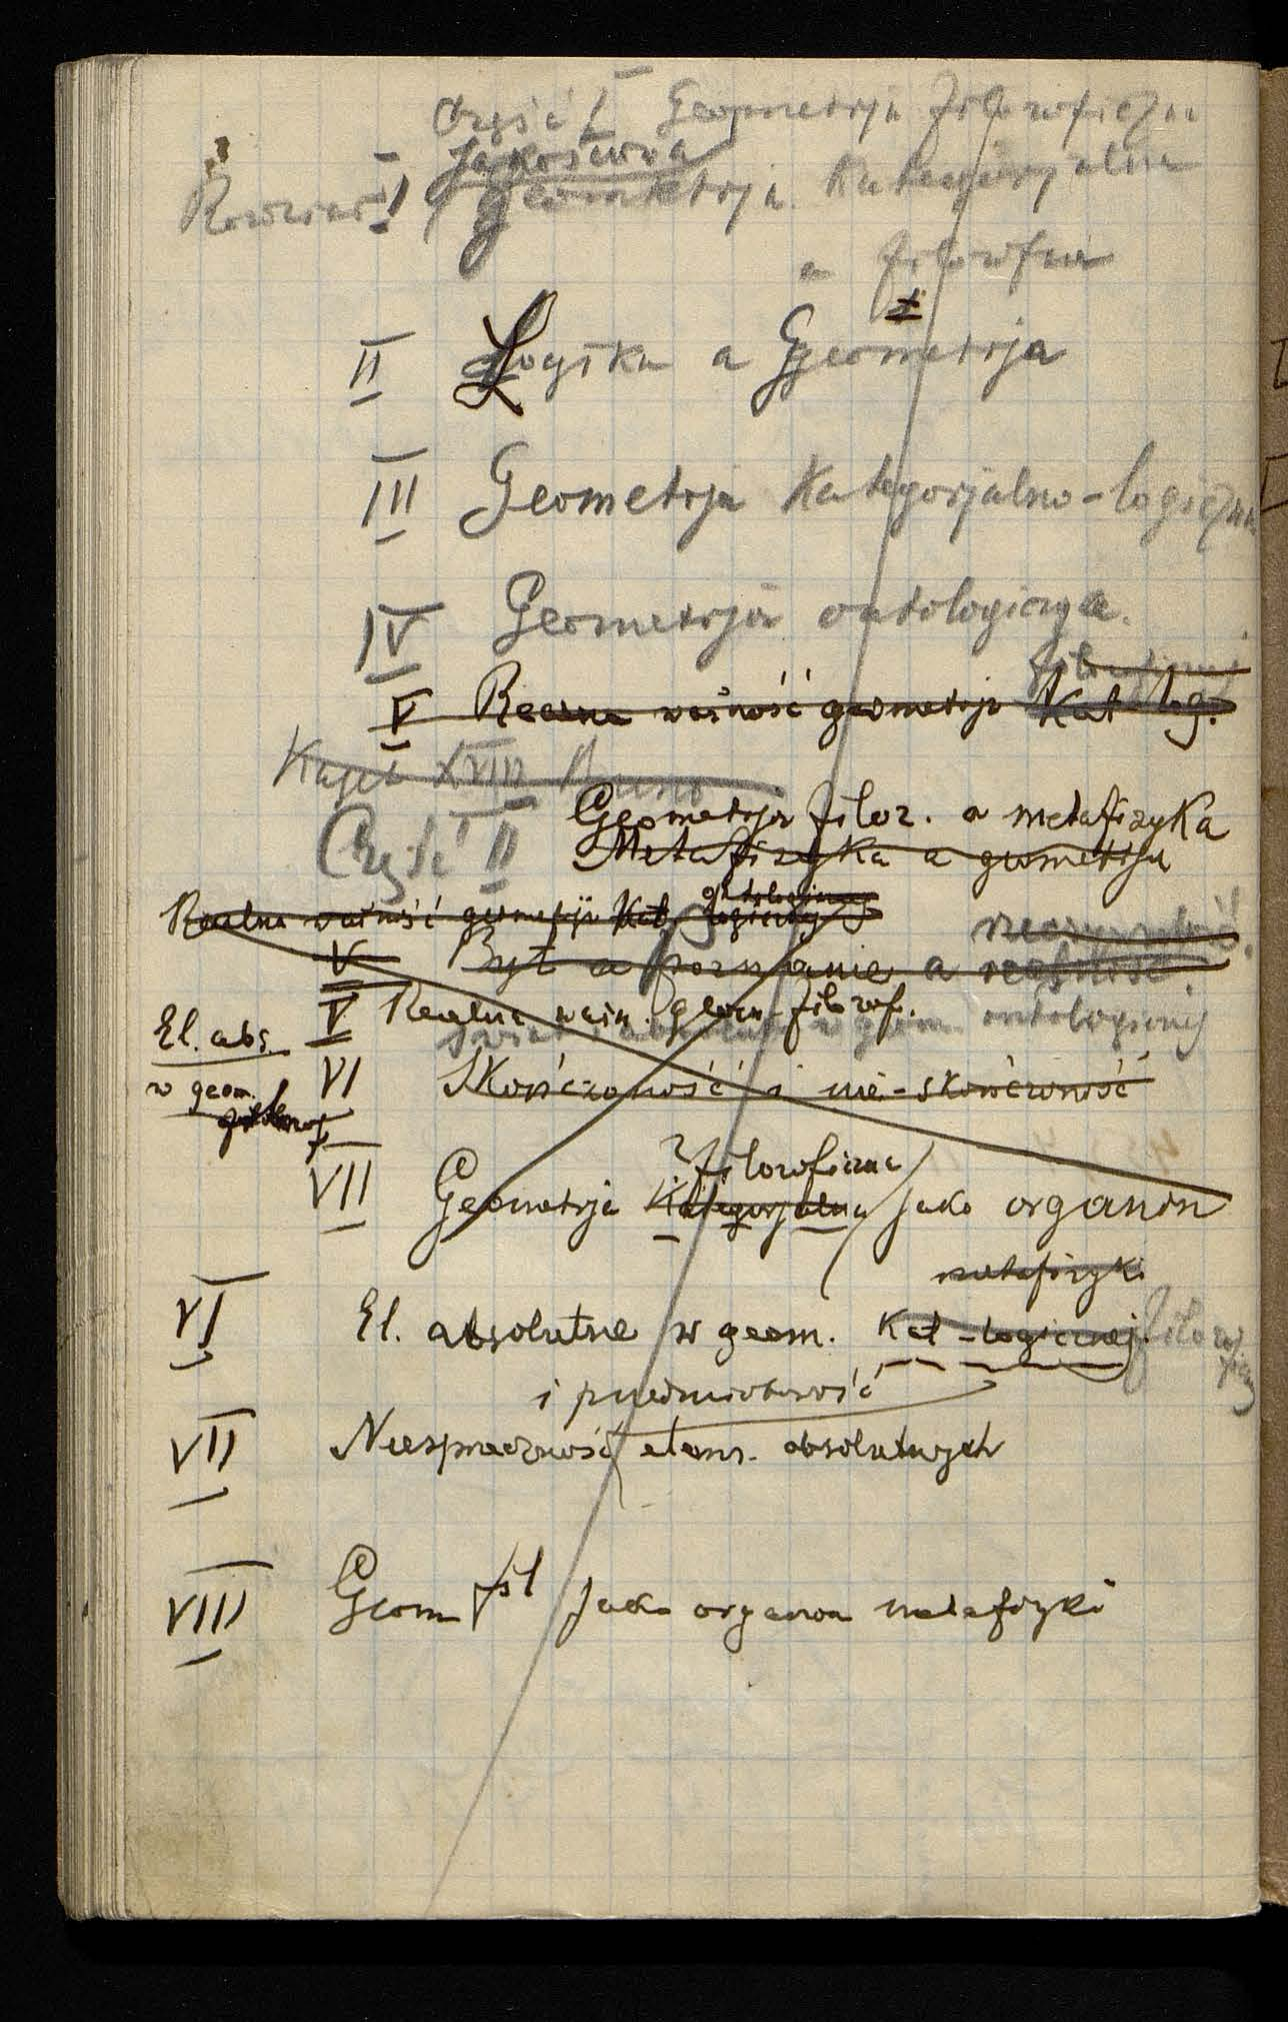 Część I Geometrja filozoficzna
Jakościowa
I Geometrja Kategorjalna
a filozofia
II Logika a Geometrja
III Geometrja Kategorjalno-logiczna
IV Geometrja ontologiczna.
V Realna ważność geometrji Kat log.
Kajet XVIII
Geometrja filoz. a metafizyka
Część II Metafizyka a geometrja
ontologicznej
Realna ważność geometrji Kat logicznej
V Byt a poznanie a realność
V Realna ważn. geom. filozof.
El. abs. w geom. ontologicznej
w geom. VI Skończoność i nie-skończoność
filozoficzna
VII Geometrja Kategorjalna jako organon
metafizyki
VI El. absolutne w geom. Kat-logicznej.
i przedmiotowość
VII Niesprzeczność elem. absolutnych
VIII Geom fil jako organon metafizyki